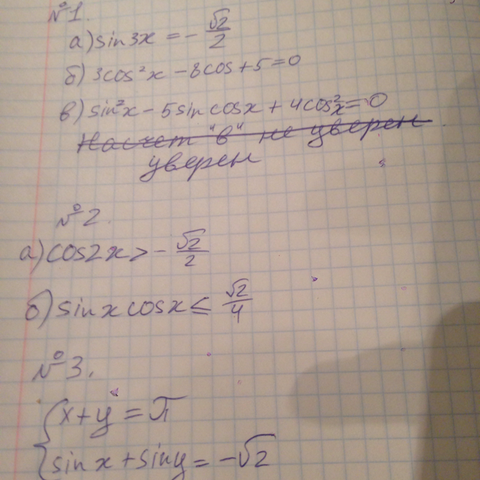 №1.
а) sin3x = -√2/2
б) 3cos²x - 8cos + 5 = 0
в) sin²x - 5sin cosx + 4cos²x = 0
Насчет "в" не уверен
уверен
№2.
а) cos2x > -√2/2
б) sinx cosx ≤ √2/4
№3.
{x + y = π
{sin x + sin y = -√2